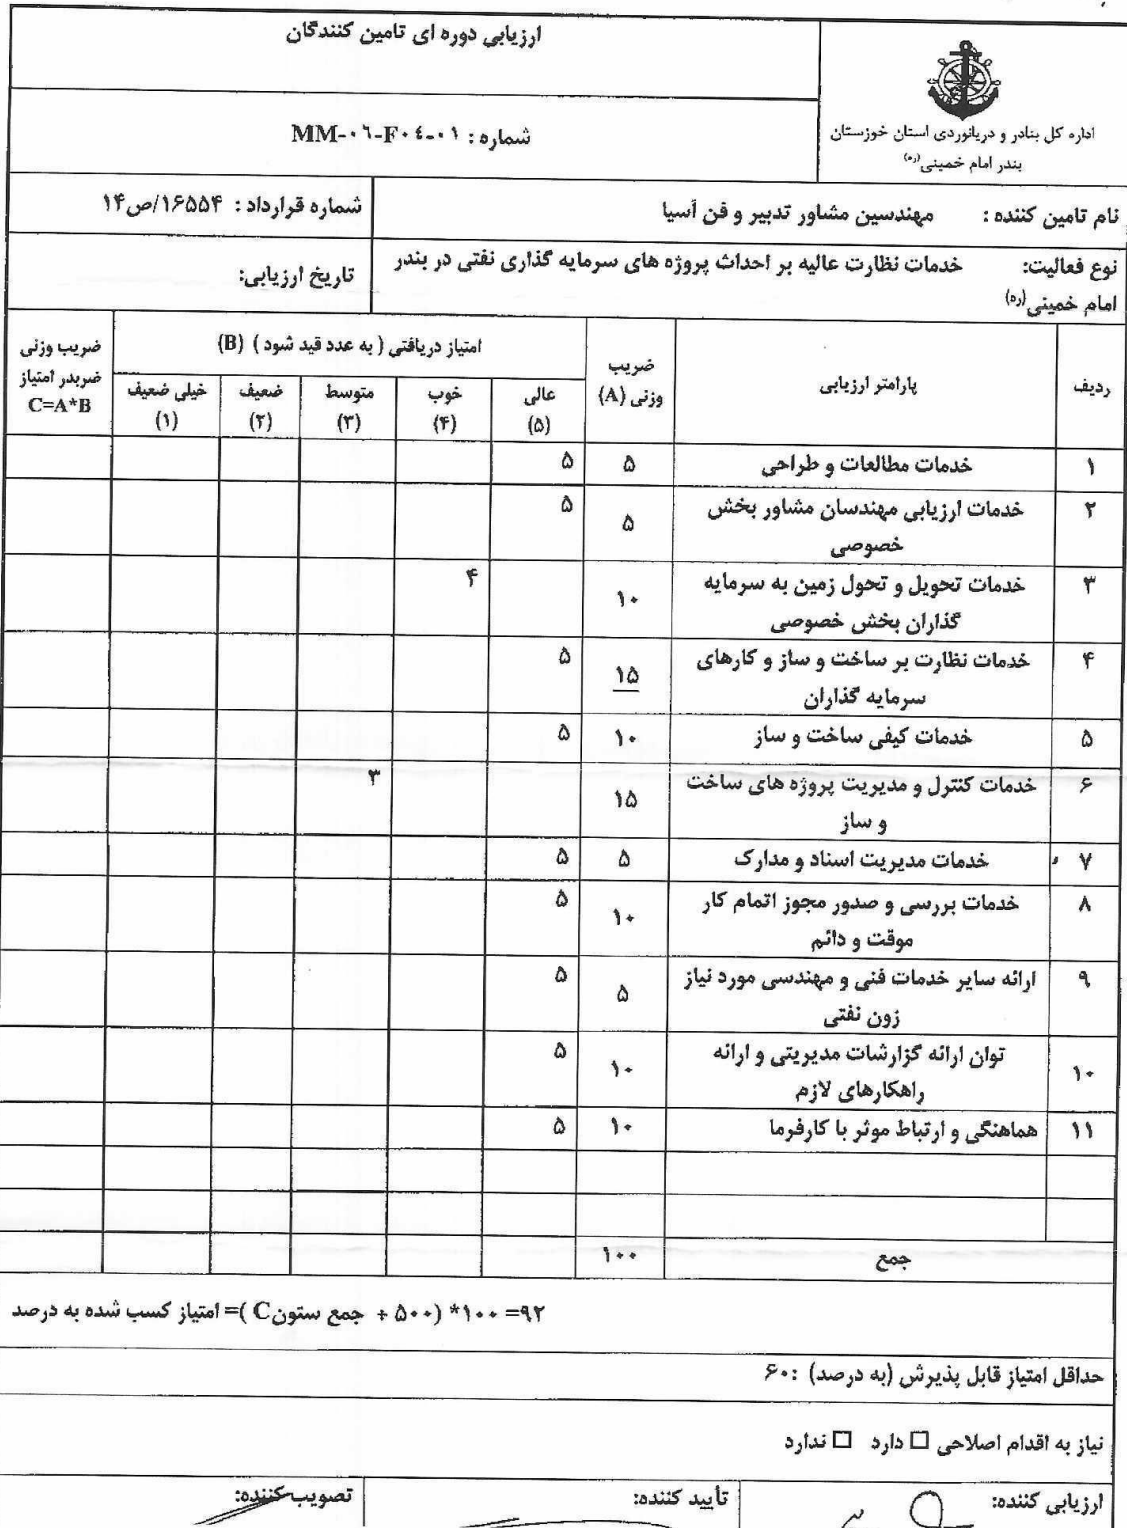 ارزیابی دوره ای تامین کنندگان
شماره : MM-۰۶-F۰۴-۰۱
اداره کل بنادر و دریانوردی استان خوزستان
بندر امام خمینی(ره)
نام تامین کننده : مهندسین مشاور تدبیر و فن آسیا
شماره قرارداد : ۱۶۵۵۴/ص۱۴
نوع فعالیت: خدمات نظارت عالیه بر احداث پروژه های سرمایه گذاری نفتی در بندر
امام خمینی(ره)
تاریخ ارزیابی:
ردیف
پارامتر ارزیابی
ضریب
وزنی (A)
امتیاز دریافتی ( به عدد قید شود ) (B)
عالی
(۵)
خوب
(۴)
متوسط
(۳)
ضعیف
(۲)
خیلی ضعیف
(۱)
ضریب وزنی
ضربدر امتیاز
C=A*B
۱ خدمات مطالعات و طراحی ۵ ۵
۲ خدمات ارزیابی مهندسان مشاور بخش
خصوصی ۵ ۵
۳ خدمات تحویل و تحول زمین به سرمایه
گذاران بخش خصوصی ۱۰ ۴
۴ خدمات نظارت بر ساخت و ساز و کارهای
سرمایه گذاران ۱۵ ۵
۵ خدمات کیفی ساخت و ساز ۱۰ ۵
۶ خدمات کنترل و مدیریت پروژه های ساخت
و ساز ۱۵ ۳
۷ خدمات مدیریت اسناد و مدارک ۵ ۵
۸ خدمات بررسی و صدور مجوز اتمام کار
موقت و دائم ۱۰ ۵
۹ ارائه سایر خدمات فنی و مهندسی مورد نیاز
زون نفتی ۵ ۵
۱۰ توان ارائه گزارشات مدیریتی و ارائه
راهکارهای لازم ۱۰ ۵
۱۱ هماهنگی و ارتباط موثر با کارفرما ۱۰ ۵
جمع ۱۰۰
۹۲= ۱۰۰* (۵۰۰ ÷ جمع ستون C )= امتیاز کسب شده به درصد
حداقل امتیاز قابل پذیرش (به درصد) :۶۰
نیاز به اقدام اصلاحی □ دارد □ ندارد
ارزیابی کننده:
تأیید کننده:
تصویب کننده: